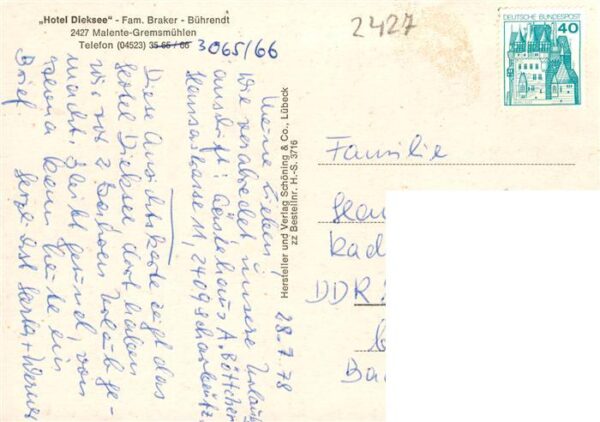 „Hotel Dieksee“ - Fam. Braker - Bührendt
2427 Malente-Gremsmühlen
Telefon (04523) 35 65 / 66 3065/66
2427
DEUTSCHE BUNDESPOST
40
Hersteller und Verlag Schöning & Co., Lübeck
zz Bestellnr. H.-S. 3716
28.7.78
Meine Lieben!
Wie verabredet unsere Urlaubs
anschrift: Gästehaus A. Böttcher
Hansastrasse 11, 2409 Scharbeutz.
Diese Ansichtskarte zeigt das
Hotel Dieksee, dort haben
wir vor 2 Jahren Urlaub ge-
macht. Bleibt gesund, von
kam heute ein
Brief. Herzlichst + Werner
Familie
DDR